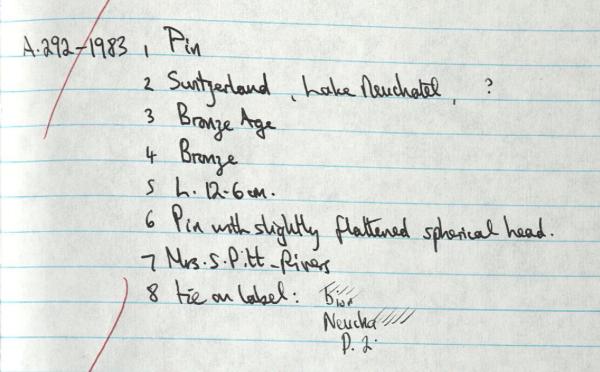 A.292-1983 1 Pin
2 Switzerland, Lake Neuchatel, ?
3 Bronze Age
4 Bronze
5 L. 12.6cm.
6 Pin with slightly flattened spherical head.
7 Mrs. S. Pitt-Rivers
8 tie on label:
Neucha
P. 2.